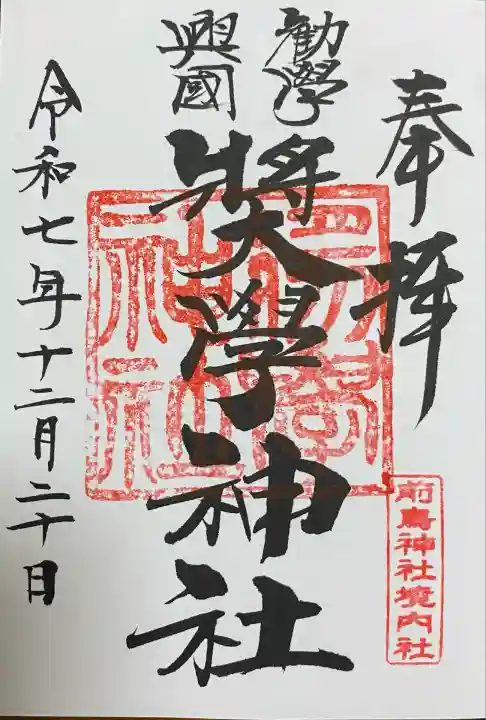 奉拝
勸學
興國
奬學神社
前鳥神社境内社
令和七年十二月二十日